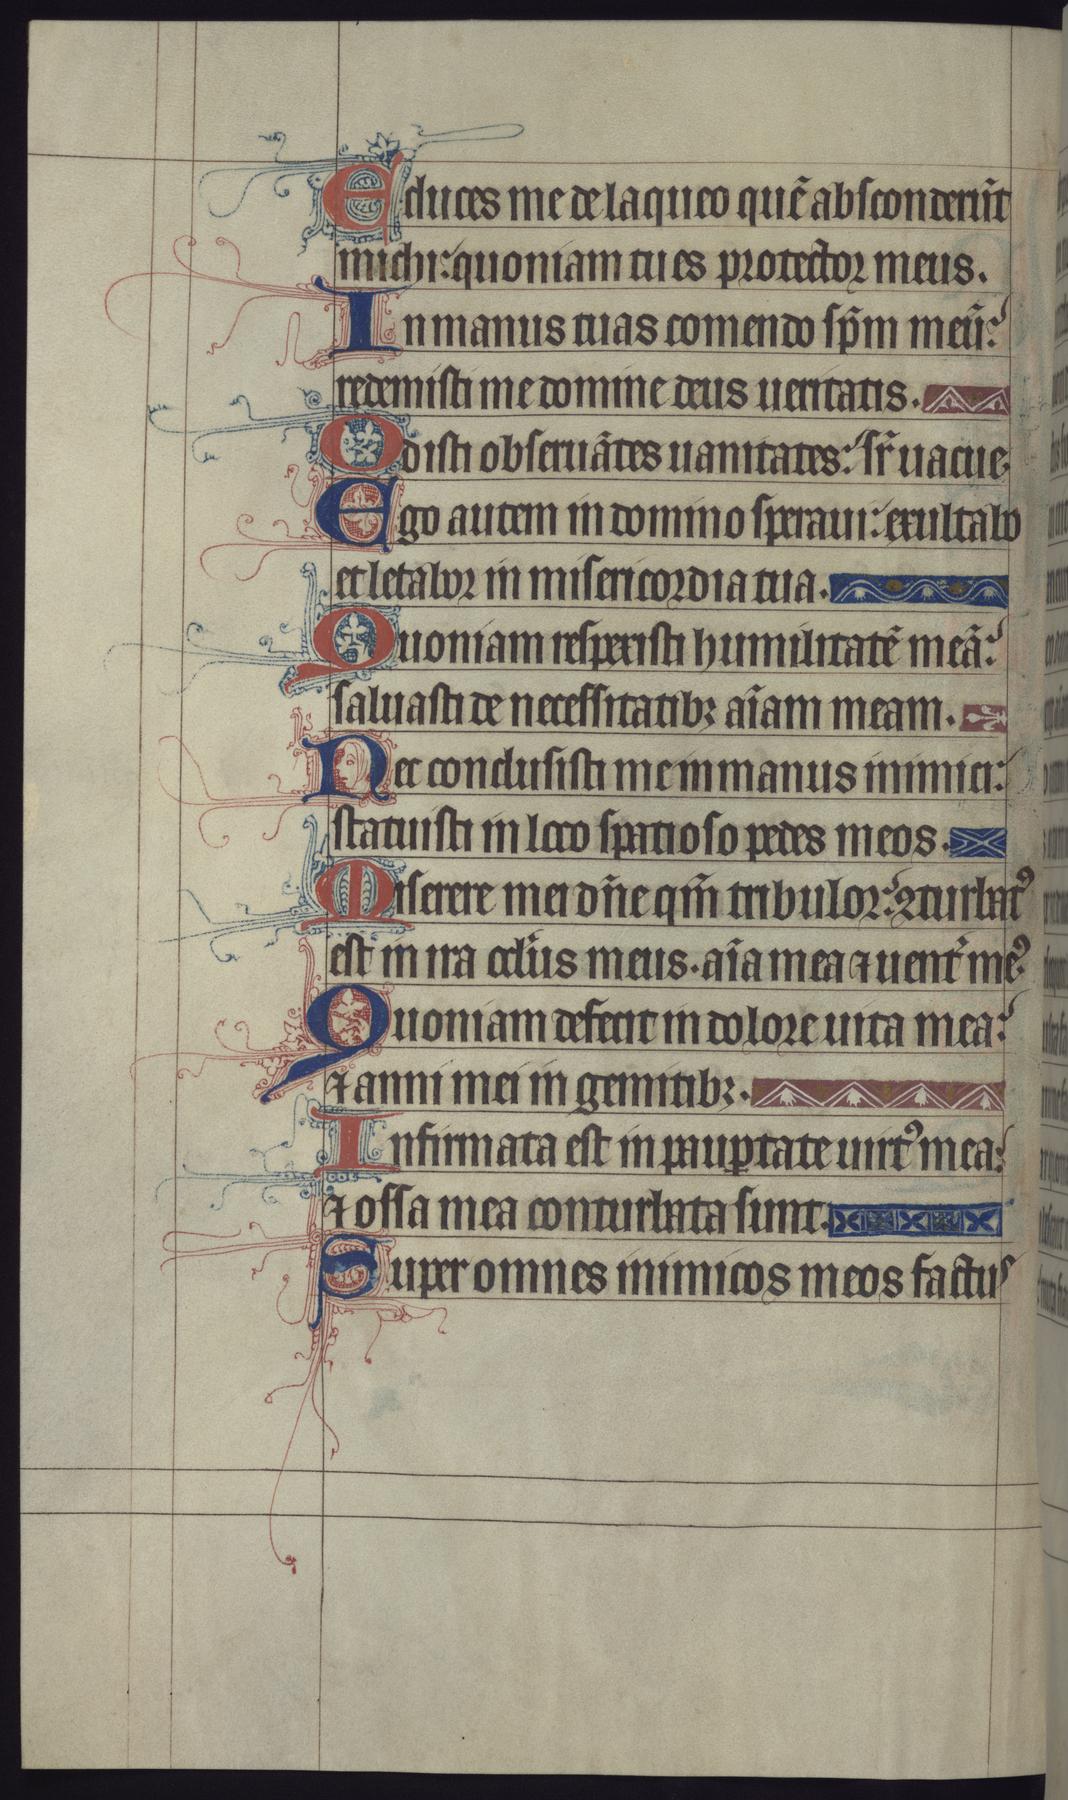 Educes me de laqueo quē absconderūt
michi: quoniam tu es protector meus.
In manus tuas comendo sp̄m meū:
redemisti me domine deus ueritatis.
Odisti obseruātes uanitates: sr̄ uacue
Ego autem in domino speraui: exultabo
et letabor in misericordia tua.
Quoniam respexisti humilitatē meā:
saluasti de necessitatibꝫ aīam meam.
Nec conclusisti me in manus inimici:
statuisti in loco spatioso pedes meos.
Miserere mei dn̄e qm̄ tribulor: ꝯturbatꝰ
est in ira oclūs meus. aīa mea ⁊ uent̄ meꝰ
Quoniam defecit in dolore uita mea:
⁊ anni mei in gemitibꝫ.
Infirmata est in paup̱tate uirtꝰ mea:
⁊ ossa mea conturbata sunt.
Super omnes inimicos meos factus